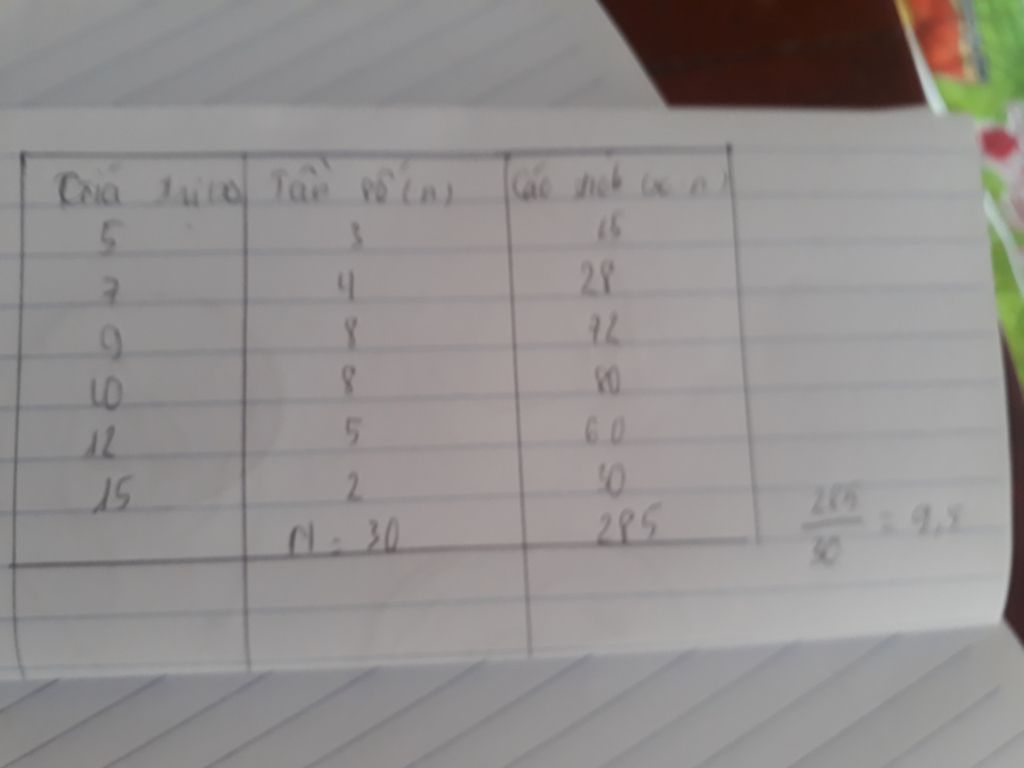 Giá trị (x) Tần số (n) Các tích (x.n)
5 3 15
7 4 28
9 8 72
10 8 80
12 5 60
15 2 30
N = 30 285
285/30 = 9,5